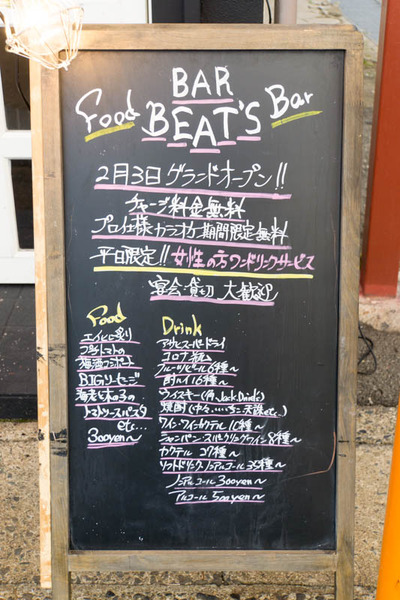 BAR
Food BEAT'S Bar
2月3日グランドオープン!!
チャージ料金無料
プロ仕様カラオケ期間限定無料
平日限定!! 女性の方ワンドリンクサービス
宴会・貸切 大歓迎
Food
エイヒレ炙り
プチトマトの
BIGソーセージ
海老ときのこの
トマトソースパスタ
etc...
300yen〜
Drink
アサヒスーパードライ
コロナ
フルーツビール6種〜
酎ハイ16種〜
ウイスキー(角 Jack.
焼酎( いいちこ etc.)
ワイン・ワインカクテル10種〜
シャンパン・スパークリングワイン8種〜
カクテル 27種〜
ソフトドリンク・ノンアルコール35種〜
ノンアルコール 300yen〜
アルコール 500yen〜